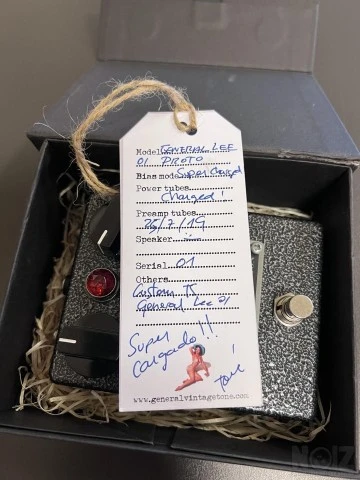 Model GENERAL LEE
01 PROTO
Bias mode Super Charged
Power tubes
Charged!
Preamp tubes
25/7/19
Speaker
Serial 01
Others
Custom TS
General Lee 01
Super
cargado!!!
www.generalvintagetone.com
NOIZ